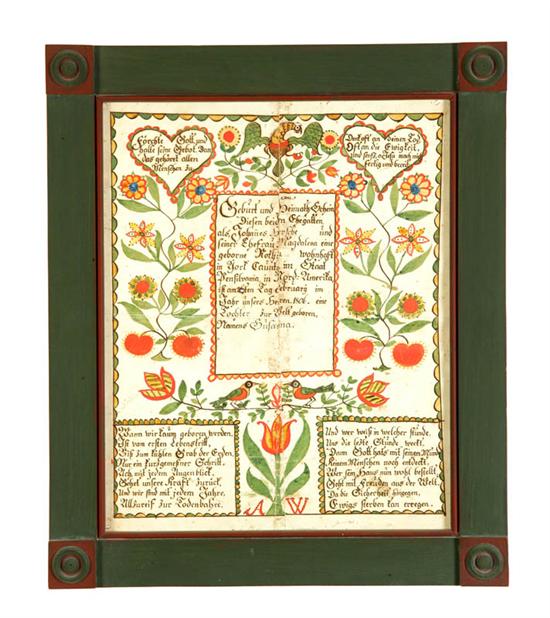 Förchte Gott und
halte seine Gebot. Dan
das gehöret allen
Menschen zu.
Denk oft an deinen Tod
Oft an die Ewigkeit,
Und
fertig und bereit
Geburt und Heimaths Schein
Diesen beiden Ehegatten
als Johannes und
seiner Ehefrau Magdalena eine
geborne wohnhaft
in York Caunty im Staat
Pensilvania, in Nord-Amerika
ist am Tag February im
Jahr unsers Herren 1806. eine
Tochter zur Welt geboren,
Namens Susanna.
Wann wir kaum geboren werden,
Ist vom ersten Lebenstritt,
Biß zum kühlen Grab der Erden,
Nur ein kurzgemeßner Schritt.
Ach mit jedem Augenblick,
Gehet unsere Kraft zurück,
Und wir sind mit jedem Jahre,
Allzureif zur Todenbahre.
Und wer weiß in welcher Stunde,
Uns die letzte Stunde weckt,
Dann Gott hats mit seinem Munde
Keinem Menschen noch entdeckt.
Wer sein Haus nun wohl bestellt
Geht mit Freuden aus der Welt.
Da die Sicherheit hingegen,
Ewigs sterben kan erregen.
A W